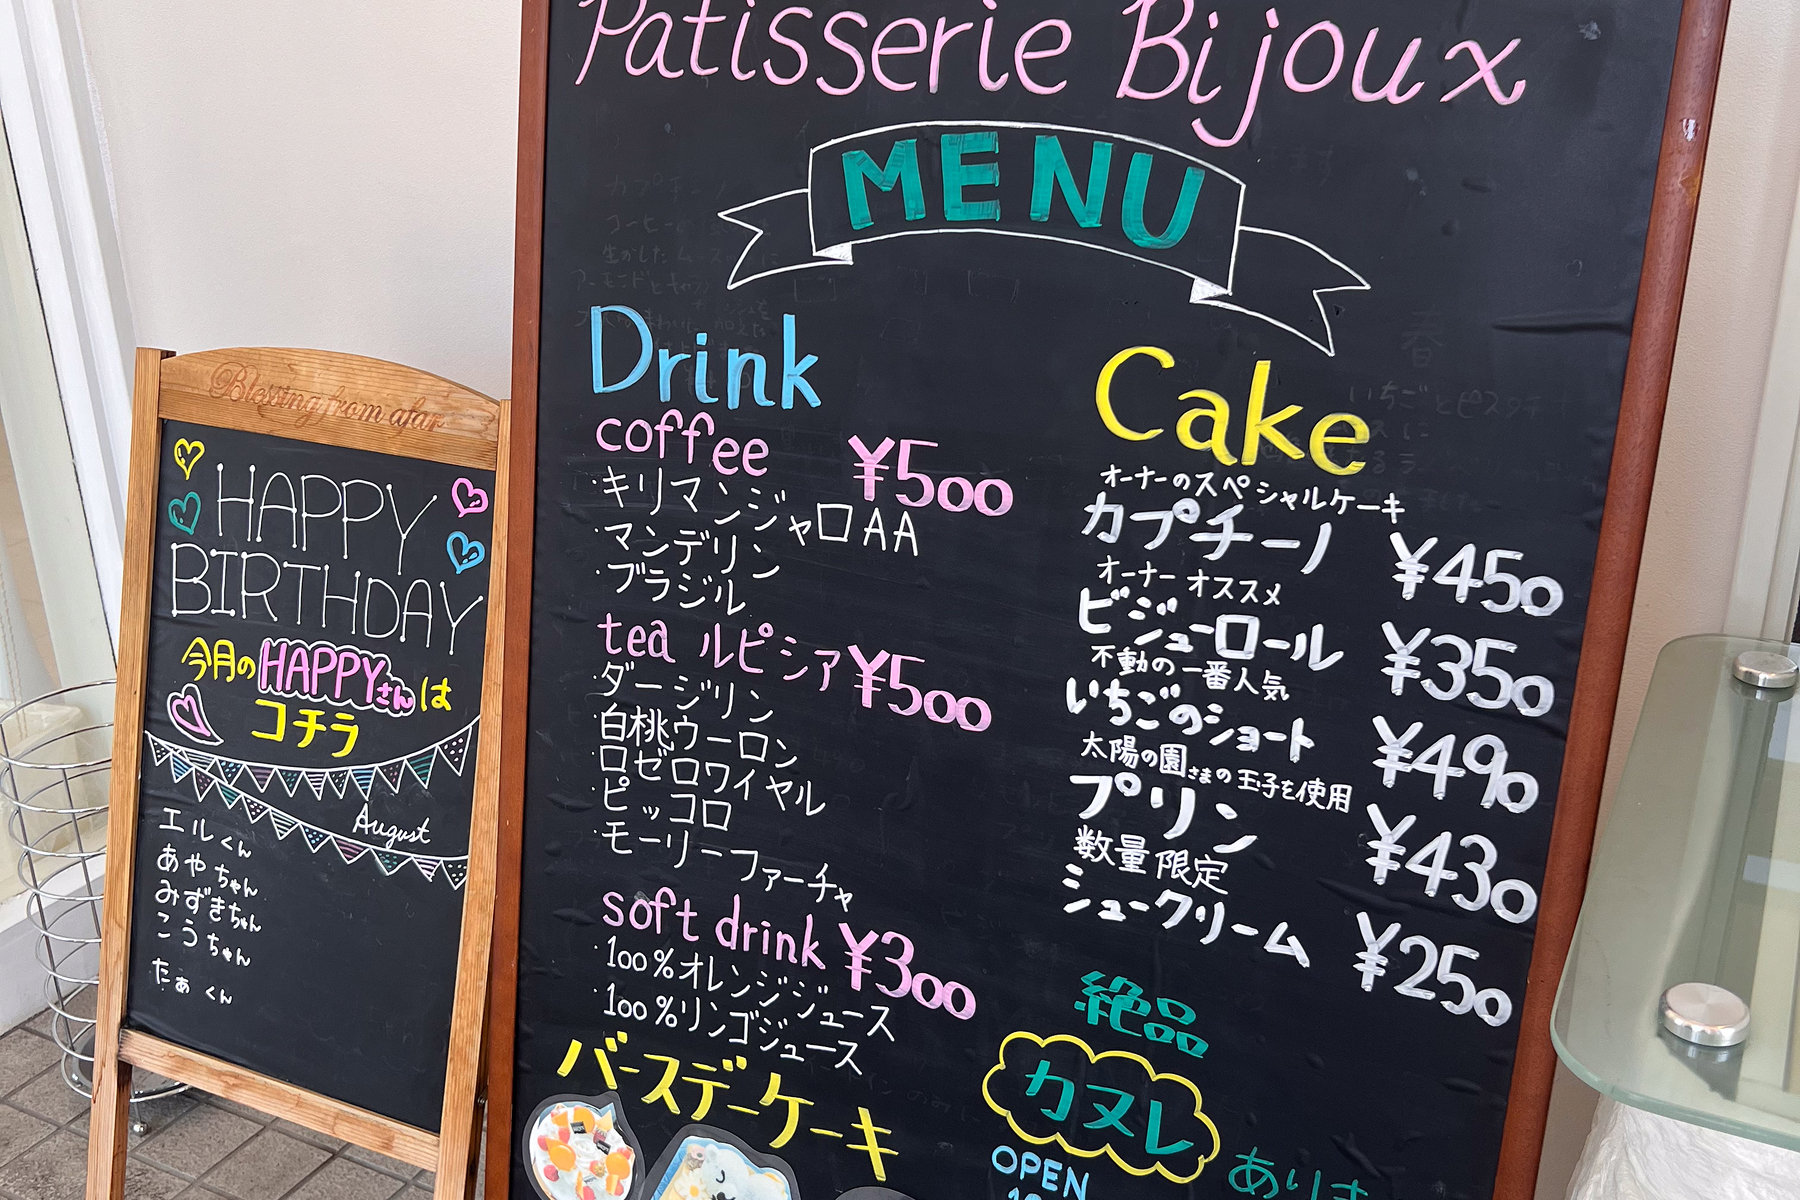 Patisserie Bijoux
MENU
Drink
coffee ¥500
・キリマンジャロAA
・マンデリン
・ブラジル
tea ルピシア ¥500
・ダージリン
・白桃ウーロン
・ロゼロワイヤル
・ピッコロ
・モーリーファーチャ
soft drink ¥300
・100%オレンジジュース
・100%リンゴジュース
バースデーケーキ
Cake
オーナーのスペシャルケーキ
カプチーノ ¥450
オーナーオススメ
ビジューロール ¥350
不動の一番人気
いちごのショート ¥490
太陽の園さまの玉子を使用
プリン ¥430
数量限定
シュークリーム ¥250
絶品
カヌレ
あります
OPEN
Blessing from afar
HAPPY
BIRTHDAY
今月のHAPPYさんは
コチラ
August
エルくん
あやちゃん
みずきちゃん
こうちゃん
たぁくん